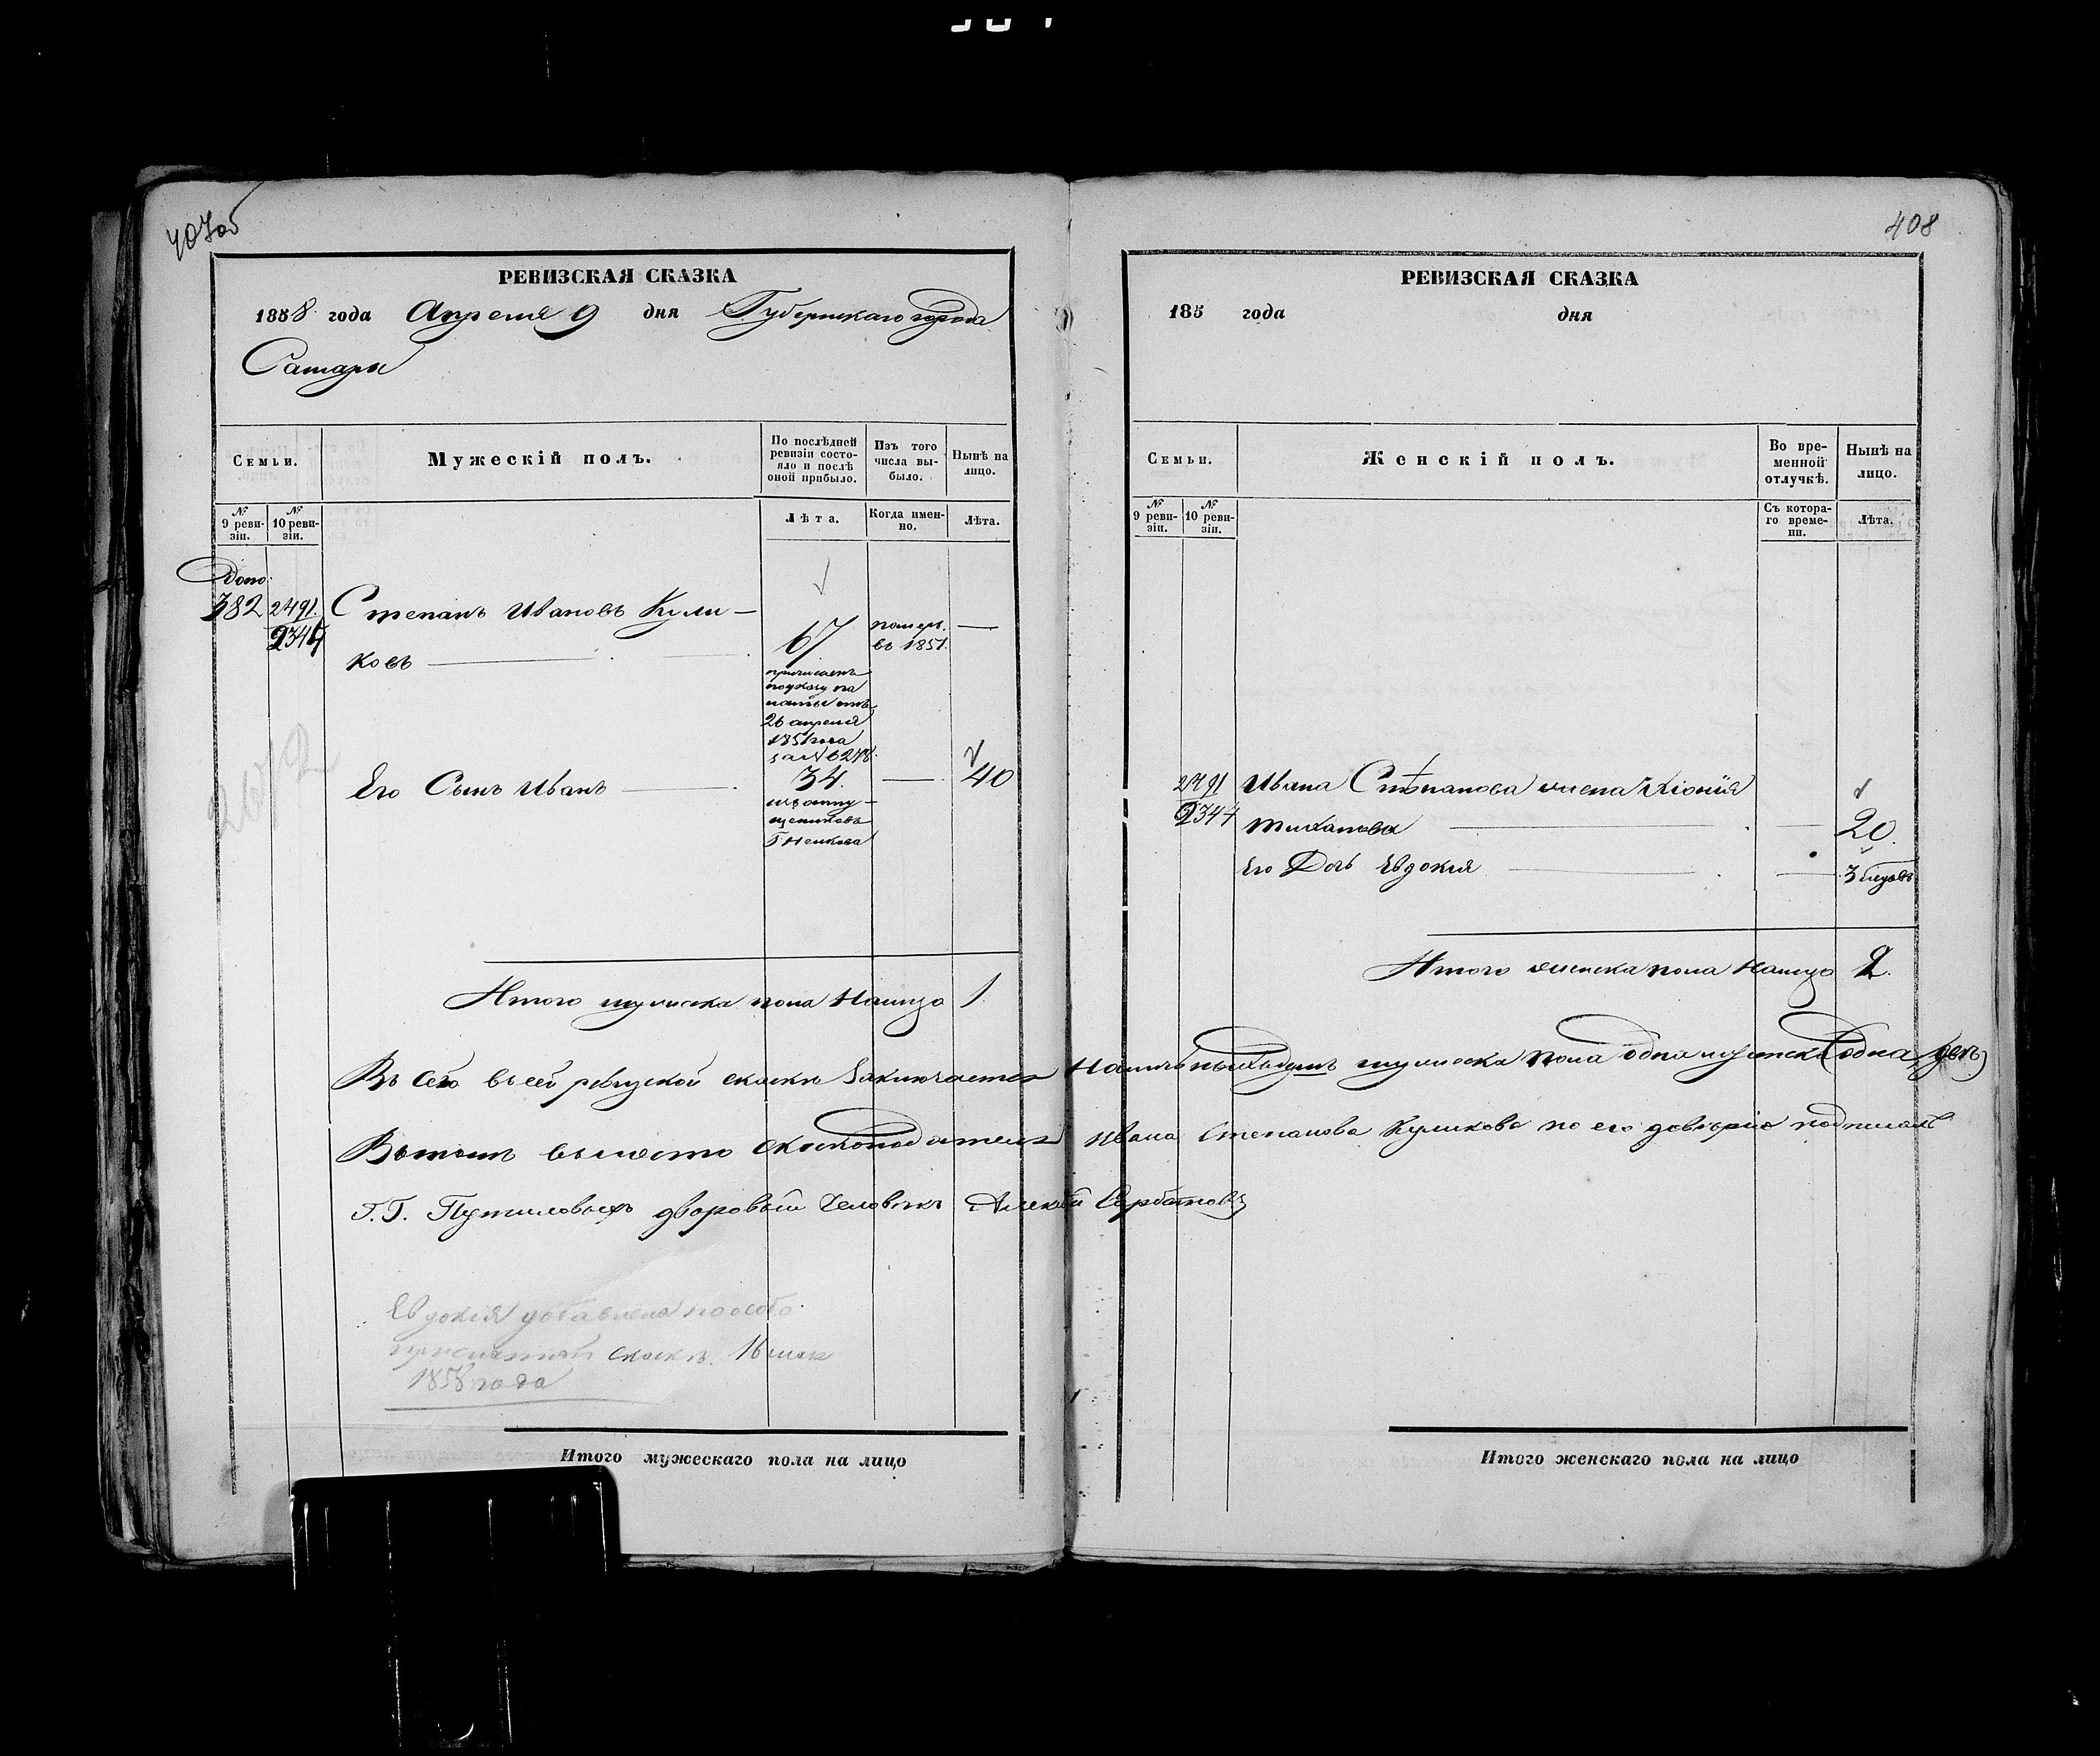 407об
РЕВИЗСКАЯ СКАЗКА
1858 года Апреля 9 дня Губернскаго города
Самары
Семьи.
Мужескій полъ.
По послѣдней ревизіи состояло и послѣ оной прибыло.
Изъ того числа выбыло.
Нынѣ на лицо.
№ 9 ревизіи.
№ 10 ревизіи.
Лѣта.
Когда именно.
Лѣта.
Допо:
382 2491. Степанъ Ивановъ Кули-
2344 ковъ 67 померъ. въ 1851. —
причисленъ
по указу па
латы отъ
26 апреля
1851 года
за № 6278.
Его Сынъ Иванъ 34. — 40
изъ отпу-
щенниковъ
Итого мужеска пола налицо 1
408
РЕВИЗСКАЯ СКАЗКА
185 года дня
Семьи.
Женскій полъ.
Во временной отлучкѣ.
Нынѣ на лицо.
№ 9 ревизіи.
№ 10 ревизіи.
Съ котораго времени.
Лѣта.
2491 Ивана Степанова жена Хіонія
2344 20.
Его Дочь Евдокія 3
Итого женска пола налицо 2.
Въ сей ревизской сказке заключается наличныхъ душъ мужеска пола одна женска одна
Въ томъ вместо сказкоподателя Ивана Степанова Куликова по его довѣрію подписалъ
Г.Г. Путиловыхъ дворовый человѣкъ Алексѣй
Евдокія добавлена по особо
сказкѣ. 16 мая
1858 года
Итого мужескаго пола на лицо
Итого женскаго пола на лицо